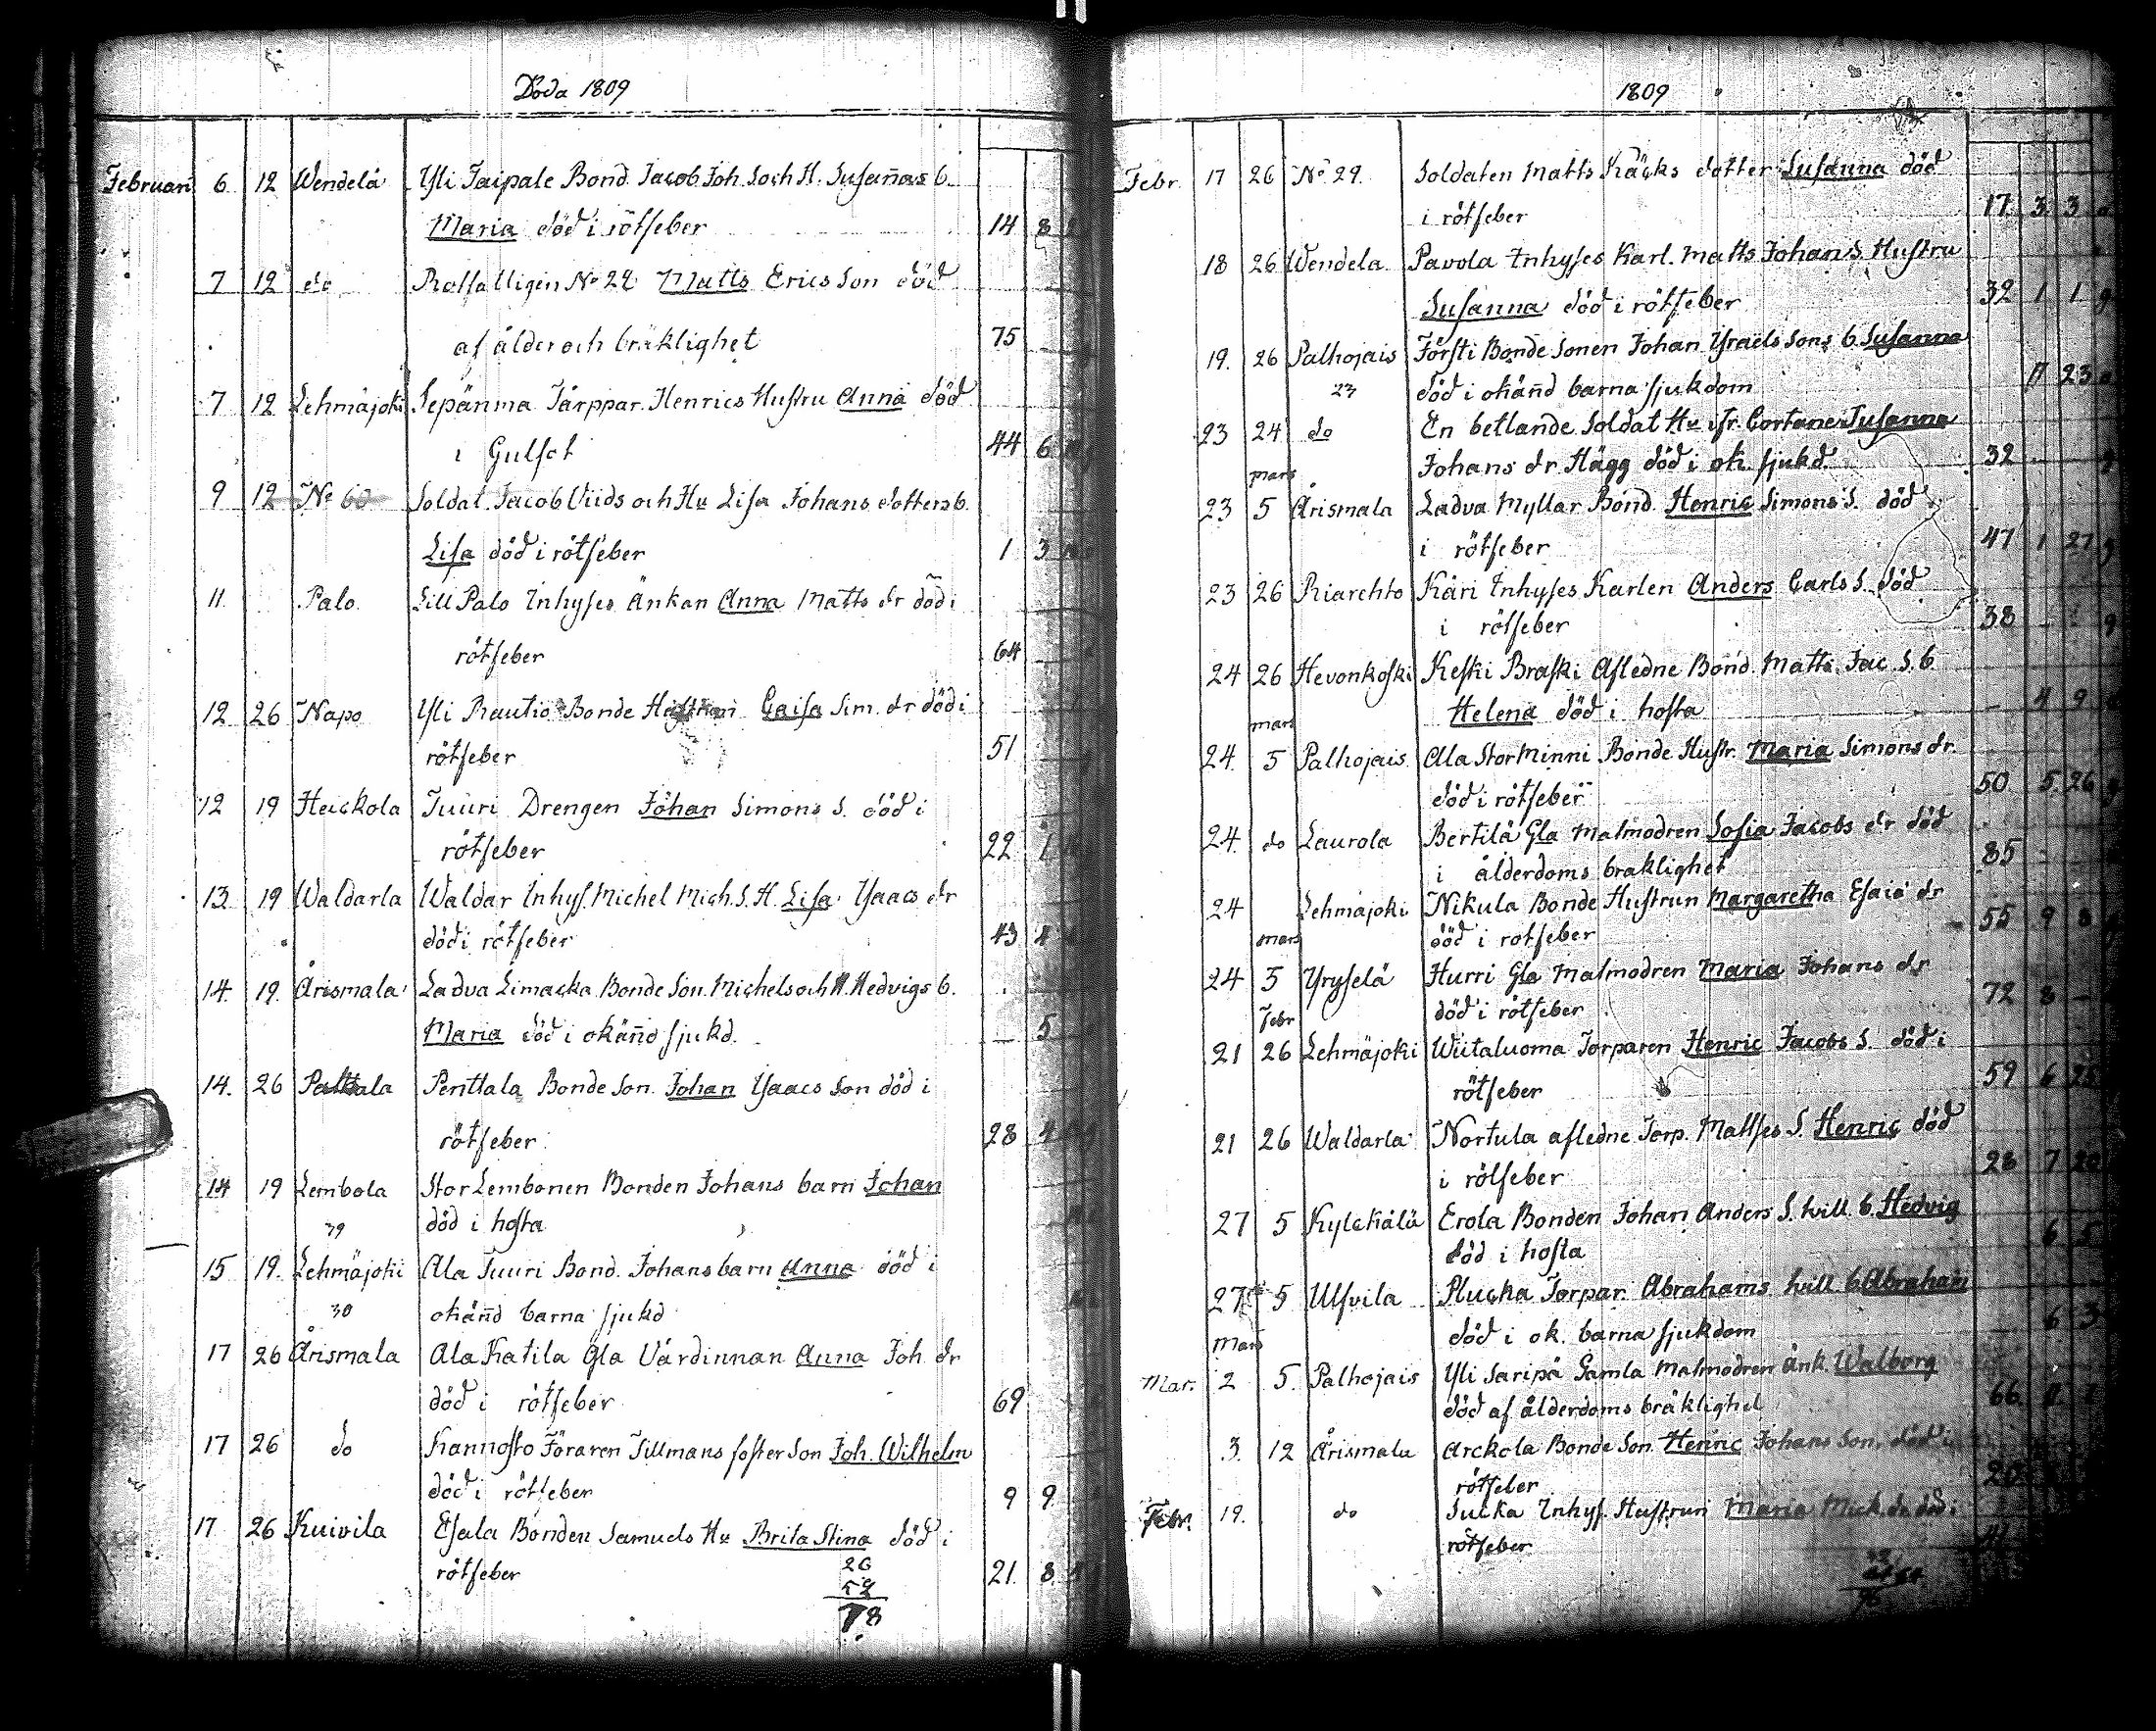 Döda 1809
Februari 6 12 Wendelä Yli Taipale Bond. Jacob Joh. S och H. Susañas b.
Maria död i rötfeber 14 8
7 12 do Rotfattigen No 22 Matts Erics Son död
af ålder och bräklighet 75
7 12 Lehmäjoki Sepänma Tårppar. Henrics Hustru Anna död
i Gulsot 44 6
9 12 No 60 Soldat. Jacob Vids och Hu Lisa Johans dotters b.
Lisa död i rötfeber 1 3
11 Palo Lill Palo Inhyses Änkan Anna Matts dr död i
rötfeber 64
12 26 Napo Yli Rautio Bonde Hustrun Caisa Sim. dr död i
rötfeber 51
12 19 Heickola Tuuri Drengen Johan Simons S. död i
rötfeber 22 1
13 19 Waldarla Waldar Inhys. Michel Mich. S. H. Lisa Ysaacs dr
död i rötfeber 43 4
14. 19. Årismala Ladva Limacka Bonde Son. Michels och H. Hedvigs b.
Maria död i okäñd sjukd. — 5
14. 26 Penttala Bonde Son. Johan Ysaacs Son död i
rötfeber 28 4
14 19 Lembola Stor Lembonen Bonden Johans barn Johan
39 död i hosta
15 19. Lehmäjoki Ala Tuuri Bond. Johans barn Anna död i
30 okäñd barna sjukd
17 26 Årismala Ala Katila Gla Värdinnan Anna Joh. dr
död i rötfeber 69
17 26 do Kannosto Föraren Tillmans foster Son Joh. Wilhelm
död i rötfeber 9 9
17 26 Kuivila Esala Bonden Samuels Hu Brita Stina död i
rötfeber 21 8
26
52
78
1809
Febr. 17 26 No 29. Soldaten Matts Käcks dotter Susanna död
i rötfeber 17 3 3
18 26 Wendela Pavola Inhyses Karl. Matts Johans S. Hustru
Susanna död i rötfeber 32 1 1
19. 26 Palhojais Försti Bonde Sonen Johan Ysraels Sons b. Susanna
23 död i okäñd barna sjukdom 11 23
23 24 do En betlande Soldat Hu ifr. Cortane Susanna
Johans dr Hägg död i ok. sjukd. 32
mars
23 5 Årismala Ladva Myllar Bond. Henric Simons S. död
i rötfeber 47 1 27
23 26 Riarehto Kåri Inhyses Karlen Anders Carls S. död
i rötfeber 38
24 26 Hevonkoski Keski Braski Afledne Bond. Matts Jac. S. b
Helena död i hosta — 4 9
mars
24. 5 Palhojais Ala Stor Minni Bonde Hustr. Maria Simons dr.
död i rötfeber 50 5 26
24. do Laurola Bertilä Gla Malmodren Sofia Jacobs dr död
i ålderdoms braklighet 85
24 Lehmäjoki Nikula Bonde Hustrun Margaretha Esaiæ dr
död i rotfeber 55 9 8
mars
24 5 Yrysela Hurri Gla Malmodren Maria Johans dr
död i rötfeber 72 8 —
Febr
21 26 Lehmäjoki Wiitaluoma Torparen Henric Jacobs S. död i
rötfeber 59 6 25
21 26 Waldarla Nortula afledne Torp. Mattses S. Henric död
i rötfeber 28 7 20
27 5 Kylckälä Erola Bonden Johan Anders S. hvill. b. Hedvig
död i hosta 6 5
27 5 Ulfvila Plucka Torpar. Abrahams hvill. b. Abraham
död i ok. barna sjukdom 6 3
mars
Mar. 2 5. Palhojais Yli Saripä Gamla Malmodren änk. Walborg
död af ålderdoms bräklighet 66
3. 12 Årismala Arckola Bonde Son Henric Johans Son, död i
rötfeber 20
Febr. 19. do Sucka Inhys. Hustrun Maria Mich. dr död i
rötfeber